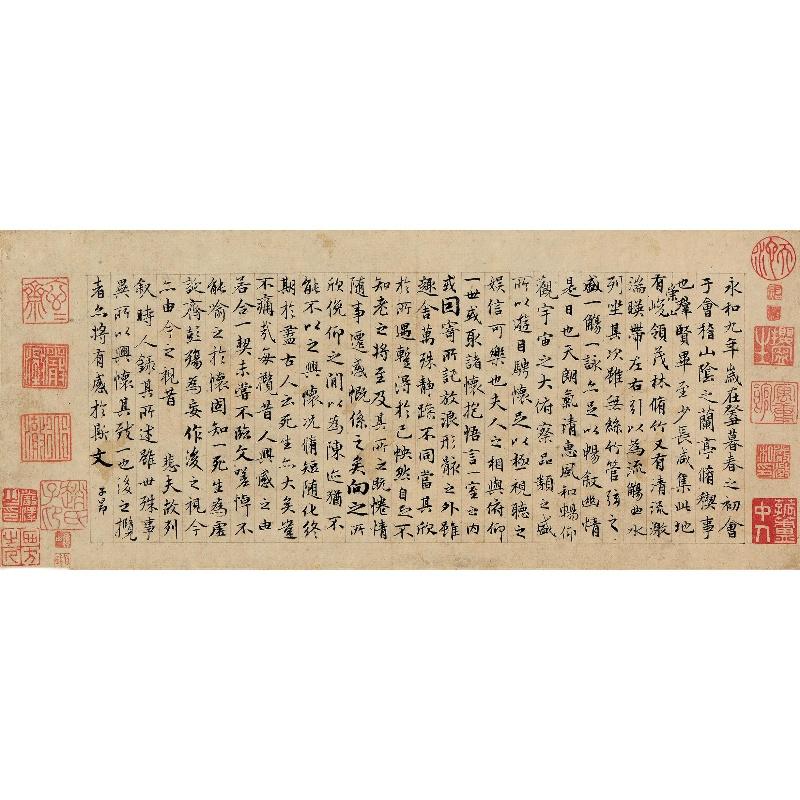 永和九年歲在癸丑暮春之初會
于會稽山陰之蘭亭脩禊事
也羣賢畢至少長咸集此地
有崇山峻領茂林脩竹又有清流激
湍暎帶左右引以為流觴曲水
列坐其次雖無絲竹管弦之
盛一觴一詠亦足以暢敘幽情
是日也天朗氣清惠風和暢仰
觀宇宙之大俯察品類之盛
所以遊目騁懷足以極視聽之
娛信可樂也夫人之相與俯仰
一世或取諸懷抱悟言一室之內
或因寄所託放浪形骸之外雖
趣舍萬殊靜躁不同當其欣
於所遇蹔得於己怏然自足不
知老之將至及其所之既惓情
隨事遷感慨係之矣向之所
欣俛仰之間以為陳迹猶不
能不以之興懷況脩短隨化終
期於盡古人云死生亦大矣豈
不痛哉每攬昔人興感之由
若合一契未嘗不臨文嗟悼不
能喻之於懷固知一死生為虛
誕齊彭殤為妄作後之視今
亦由今之視昔 悲夫故列
敘時人錄其所述雖世殊事
異所以興懷其致一也後之攬
者亦將有感於斯文
子昂
趙氏子昂